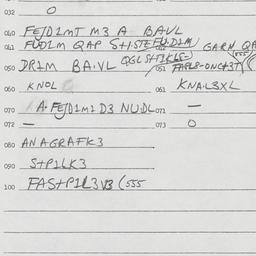 032 O
040 FEJD1MT M3 A BAVL
041 FUD1M QAP S+1STEFUD1M GARN QA
050 DR1M BA.VL
051
060 KNOL 061 KNA.L3XL
070 A.FEJD1M1D3 NUDL 071 —
072 — 073 O
080 ANAGRAFK3
090 S+P1LK3
100 FAS+P1L3V3 (555